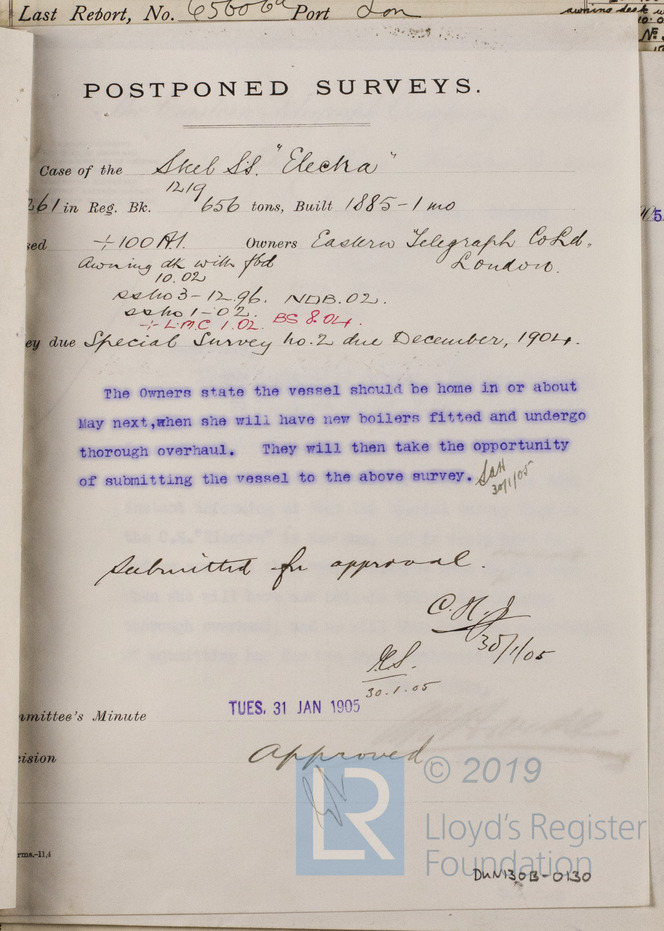 Last Report, No. 65606a Port Lon
POSTPONED SURVEYS.
Case of the Skel S.S. "Electra"
1219
261 in Reg. Bk. 656 tons, Built 1885-1 mo
sed +100A1. Owners Eastern Telegraph Co Ld.
Awning dk with fbd London.
10.02
ssno3-12.96. NDB.02.
ssno1-02.
+LMC 1.02. BS 8.04.
ey due Special Survey no. 2 due December, 1904.
The Owners state the vessel should be home in or about
May next, when she will have new boilers fitted and undergo
thorough overhaul. They will then take the opportunity
of submitting the vessel to the above survey.
30/1/05
Submitted for approval.
C.H.J
30/1/05
30.1.05
TUES. 31 JAN 1905
mmittee's Minute
cision Approved
rms.-11,4
LR
© 2019
Lloyd's Register
Foundation
DUN130B-0130